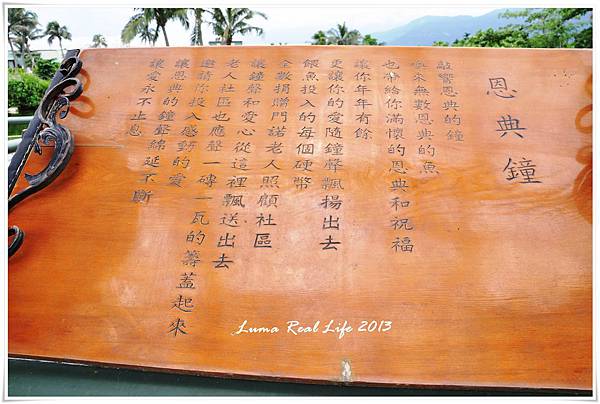 恩典鐘
敲響恩典的鐘
喚來無數恩典的魚
也帶給你滿懷的恩典和祝福
讓你年年有餘
更讓你的愛隨鐘聲飄揚出去
餵魚投入的每個硬幣
全數捐贈門諾老人照顧社區
讓鐘聲和愛心從這裡飄送出去
老人社區也應聲一磚一瓦的籌蓋起來
邀請你投入感動的愛
讓恩典的鐘聲綿延不斷
讓愛永不止息
Luma Real Life 2013